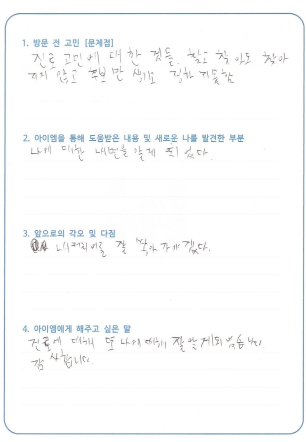 1. 방문 전 고민 [문제점]
진로 고민에 대한 것들. 찾고 찾아도 찾아
지지 않고 후보만
2. 아이엠을 통해 도움받은 내용 및 새로운 나를 발견한 부분
나에 대한 내면을 알게 되었다.
3. 앞으로의 각오 및 다짐
내 커리어를 잘 쌓아 가겠다.
4. 아이엠에게 해주고 싶은 말
진로에 대해 또 나에 대해 잘 알게되었습니다
감사합니다.